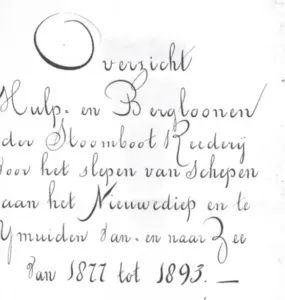 Overzicht
Hulp- en Bergloonen
der Stoomboot Reederij
voor het slepen van Schepen
aan het Nieuwediep en te
Ymuiden van- en naar Zee
van 1877 tot 1893. —